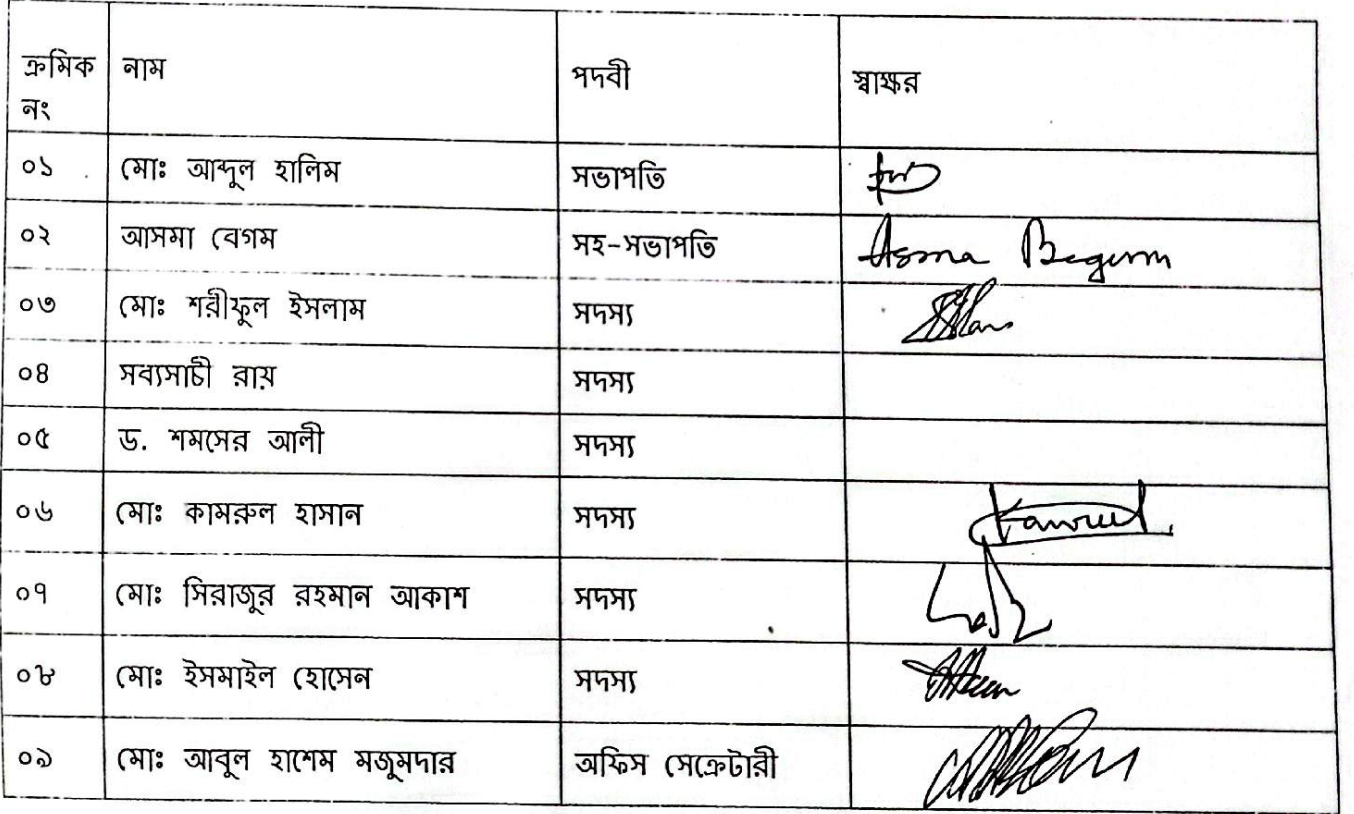 ক্রমিক নং নাম পদবী স্বাক্ষর
০১ মোঃ আব্দুল হালিম সভাপতি
০২ আসমা বেগম সহ-সভাপতি Asma Begum
০৩ মোঃ শরীফুল ইসলাম সদস্য
০৪ সব্যসাচী রায় সদস্য
০৫ ড. শমসের আলী সদস্য
০৬ মোঃ কামরুল হাসান সদস্য Kamrul
০৭ মোঃ সিরাজুর রহমান আকাশ সদস্য
০৮ মোঃ ইসমাইল হোসেন সদস্য
০৯ মোঃ আবুল হাশেম মজুমদার অফিস সেক্রেটারী